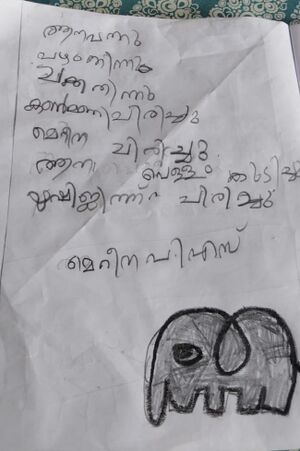 ആനവന്നു
പഴംതിന്നു
ചക്കതിന്നു
കൺമണിചിരിച്ചു
മെറീന ചിരിച്ചു
ആന വെള്ളം കുടിച്ചു
ചിരിച്ചു
മെറീന